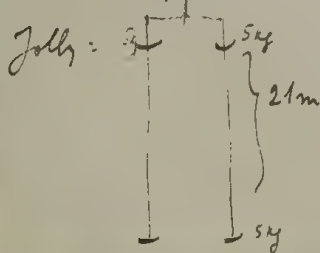 Jolly: 5 5 kg
21 m
5 kg